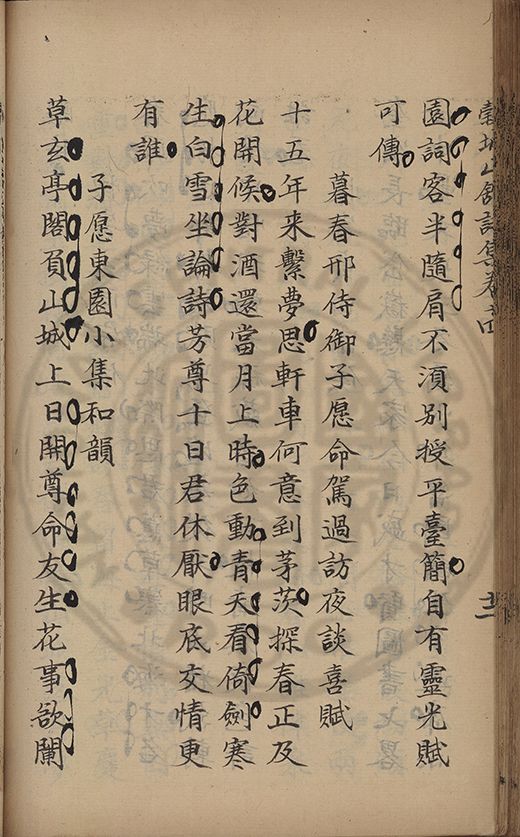 穀城山館詩集卷十四
十二
園詞客半隨肩不湏別授平臺簡自有靈光賦
可傳
暮春邢侍御子愿命駕過訪夜談喜賦
十五年来繫夢思軒車何意到茅茨探春正及
花開候對酒還當月上時色動青天看倚劍寒
生白雪坐論詩芳尊十日君休厭眼底交情更
有誰
子愿東園小集和韻
草玄亭閣負山城上日開尊命友生花事欲闌